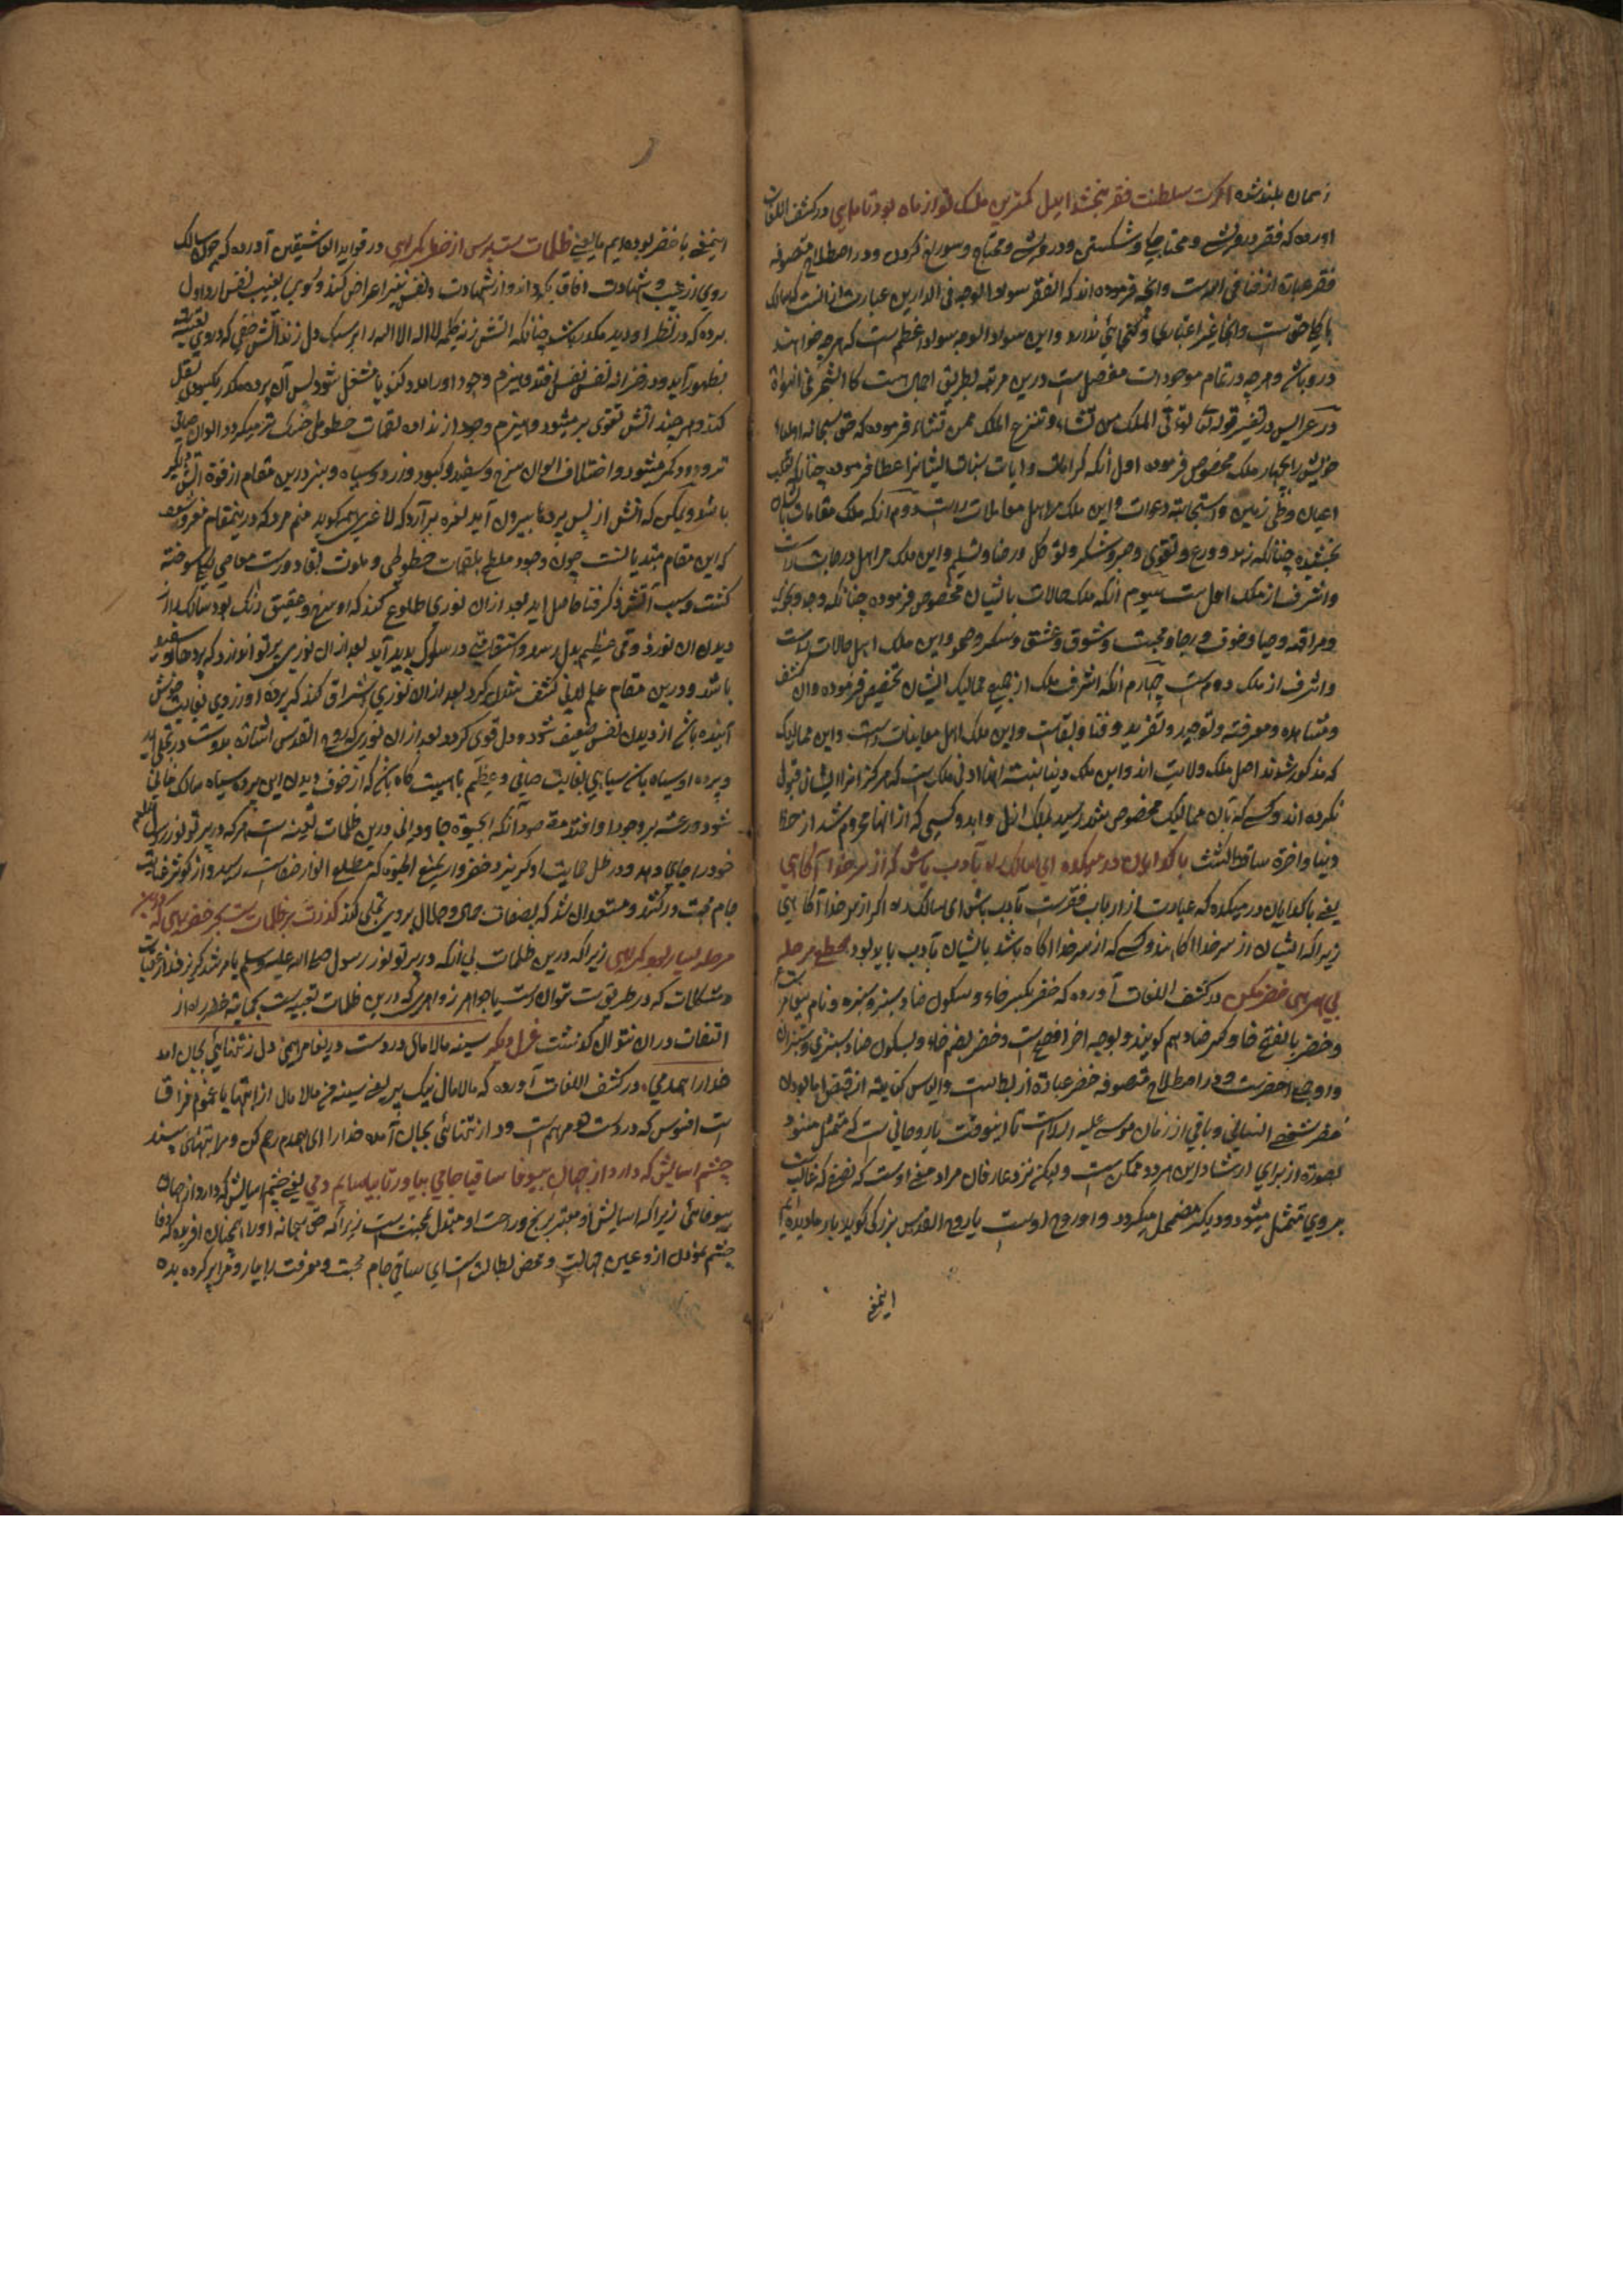 زمان بلند شده اگرت سلطنت فقر بخشند ایدل کمترین ملک تو از ماه بود تا ماهی در کشف اللغات
آورده که فقر درویشی و محتاجی و شکستن و درویش و محتاج و سوراخ کردن و در اصطلاح متصوفه
فقر عبارة از فنا فی الله است و آنچه فرموده اند که الفقر سواد الوجه فی الدارین عبارت از آنست که سالک
و این سواد الوجه سواد اعظم است که هر چه خواهند
درو باشد و هر چه در تمام موجودات مفصل است درین مرتبه بطریق اجمال است کالشجر فی النواة
در عرایس در تفسیر قوله تعالی تؤتی الملک من تشاء و تنزع الملک ممن تشاء فرموده که حق سبحانه
خویش را بچهار ملک مخصوص فرموده اول آنکه کرامات و آیات ایشانرا عطا فرموده چنانکه تقلب
اعیان و طی زمین و استجابته دعوات و این ملک مر اهل معاملات راست دوم آنکه ملک مقامات بایشان
بخشیده چنانکه زهد و ورع و تقوی و صبر و شکر و توکل و رضا و تسلیم و این ملک مر اهل درجات راست
و اشرف از ملک اول است سیوم آنکه ملک حالات بایشان مخصوص فرموده چنانکه وجد و
و مراقبه و حیا و خوف و رجا و محبت و شوق و عشق و سکر و صحو و این ملک اهل حالات راست
و اشرف از ملک دوم است چهارم آنکه اشرف ملک از جمیع ممالیک ایشان تخصیص فرموده و آن کشف
و مشاهده و معرفته و توحید و تفرید و فنا و بقاست و این ملک اهل معاینات راست و این ممالیک
که مذکور شوند اصل ملک ولایت اند و این ملک دنیا بنسبته آنها ادنی ملک است که هرگز آنرا ایشان قبول
نکرده اند و کسی که بآن ممالیک مخصوص شد رسید بملک ازل و ابد و کسی که از آنها محروم شد از حظ
دنیا و آخرة ساقط گشت با گدایان در میکده ای سالک راه بآدب باش گر از سر خدا آگاهی
یعنی با گدایان در میکده که عبارت از ارباب فقرست بآدب باش ای سالک راه اگر از سر خدا آگاهی
زیرا که ایشان از سر خدا آگاهند و کسی که از سر خدا آگاه باشد بایشان بآدب باید بود قطع این مرحله
بی همرهی خضر مکن در کشف اللغات آورده که خضر بکسر خاء و سکون ضاد سبز و سبزه و نام پیغامبر
و خضر بالفتح خا و کسر ضاد هم گویند و بوجه آخر افصح است و خضر بضم خاء و بسکون ضاد سبزی و سبزان
و در اصطلاح متصوفه خضر عبارة از بسط است و الیاس کنایه از قبض اما بودن
خضر شخصی انسانی و باقی از زمان موسی علیه السلام تا اینوقت یا روحانی است که متمثل میشود
بصورة از برای ارشاد این هر دو ممکن است و لیکن نزد عارفان مراد معنی اوست که بصفتی که غالب
بروی متمثل میشود و دیگر مضمحل میگردد و او روح اوست یا روح القدس بزرگی گوید
اینمعنی
اینمعنی با خضر بوده ایم یعنی ظلمات ست بترس از خطر گمراهی در فواید العاشقین آورده که چون سالک
روی از غیب و شهادت آفاق بگرداند و از شهادت نفس نیز اعراض کند و روی بغیب نفس آرد اول
پرده که در نظر او دید مکدر باشد چنانکه آتش زنه کلمه لا اله الا الله را بر سنگ دل زند آتش خفی که دروی تعبیه است
بظهور آید و در خزانه نفس افتد و هیزم وجود او را مدد کند تا مشتعل شود پس آن پرده مکدر نقل
کند و هر چند آتش بتقوی بر میشود و هیزم وجود از نداوه لقمات خطوطی خشک تر میگردد الوان صافی تر
و دود کمتر میشود و اختلاف الوان سرخ و سفید و کبود و زرد و سیاه و سبز درین مقام از قوة آتش ذکر
باشد و ممکن که آتش از پس پرده ها بیرون آید نعره برآرد که لا غیری گوید منم مرد که درینمقام مغرور نشود
که این مقام مبتدیانست چون وجود بلقمات حظوظی و ملوث بقاذورت معاصی سوخته
گشت و سبب آتش ذکر فنا حاصل آید بعد از آن نوری طلوع کند که او سرخ و عقیق رنگ بود سالک را از
دیدن آن نور ذوقی عظیم بدل رسد و استقامتی در سلوک پدید آید بعد از آن نوری پرتو اندازد که پرده او سفید
باشد و درین مقام علم لدنی کشف شدن گیرد بعد از آن نوری اشراق کند که پرده او زردی بغایت خوش
آینده باشد از دیدن نفس ضعیف شود و دل قوی گردد بعد از آن نوری که روح القدس اشاره بدوست در تجلی آید
و پرده او سیاه باشد سیاهی بغایت صافی و عظیم باهیبت گاه باشد که از خوف دیدن این پرده سیاه سالک فانی
شود و رعشه بر وجود او افتد مقصود آنکه آب حیوة جاودانی درین ظلمات تعبیه است هر که در پرتو نور رسول صلعم
خود را جای دهد و در ظل حمایت او گریزد خضروار بمنبع الحیوة که مطلع انوار صفات است رسد و از کوثر عنایت
جام محبت در کشد و مستعد آن شد که بصفات جمال و جلال برو تجلی کند گذرت بر ظلمات ست بجو خضر رهی که درین
مرحله بسیار بود گمراهی زیرا که درین ظلمات بی آنکه در پرتو نور رسول صلی الله علیه وسلم یا مرشد گریزند از عقبات
و مشکلات که در طریقت نتوان رست یا جواهر زواهری که درین ظلمات تعبیه ست بی حمایة خضر راه از
التفات در آن نتوان گذشت غزل دیگر سینه مالامال دردست دریغا مرهمی دل ز تنهائی بجان آمد
خدارا همدمی در کشف اللغات آورده که مالامال نیک پر یعنی سینه من مالامال از انتها یا بغم فراق
است افسوس که دردست و مرهم نیست و دل از تنهائی بجان آمده خدارا ای همدم رحم کن و مرا تنها مپسند
چشم آسایش که دارد از جهان بیوفا ساقیا جامی بیاور تا بیاسایم دمی یعنی چشم آسایش که دارد از جهان
بیوفا هی زیرا که آسایش او مبتدل برنج و راحت او مبتدل بمحنت ست زیرا که حق سبحانه او را همچنان آفریده که وفا
چشم نمودن ازو عین جهالت و محض بطالت ست ای ساقی جام محبت و معرفت را بیار و مرا پر کرده بده